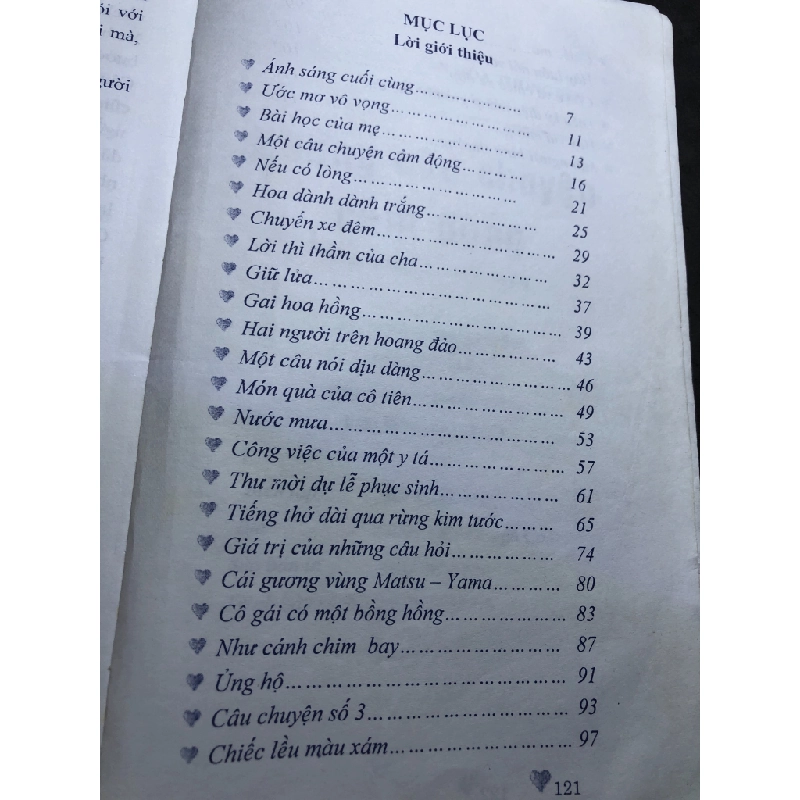 ói với
i mà,
gười
MỤC LỤC
Lời giới thiệu
Ánh sáng cuối cùng……………… 7
Ước mơ vô vọng……………… 11
Bài học của mẹ……………… 13
Một câu chuyện cảm động……… 16
Nếu có lòng……………… 21
Hoa dành dành trắng……………… 25
Chuyến xe đêm……………… 29
Lời thì thầm của cha……………… 32
Giữ lửa……………… 37
Gai hoa hồng……………… 39
Hai người trên hoang đảo……… 43
Một câu nói dịu dàng……………… 46
Món quà của cô tiên……………… 49
Nước mưa……………… 53
Công việc của một y tá……………… 57
Thư mời dự lễ phục sinh……………… 61
Tiếng thở dài qua rừng kim tước……… 65
Giá trị của những câu hỏi……………… 74
Cái gương vùng Matsu – Yama……… 80
Cô gái có một bông hồng……………… 83
Như cánh chim bay……………… 87
Ủng hộ……………… 91
Câu chuyện số 3……………… 93
Chiếc lều màu xám……………… 97
121